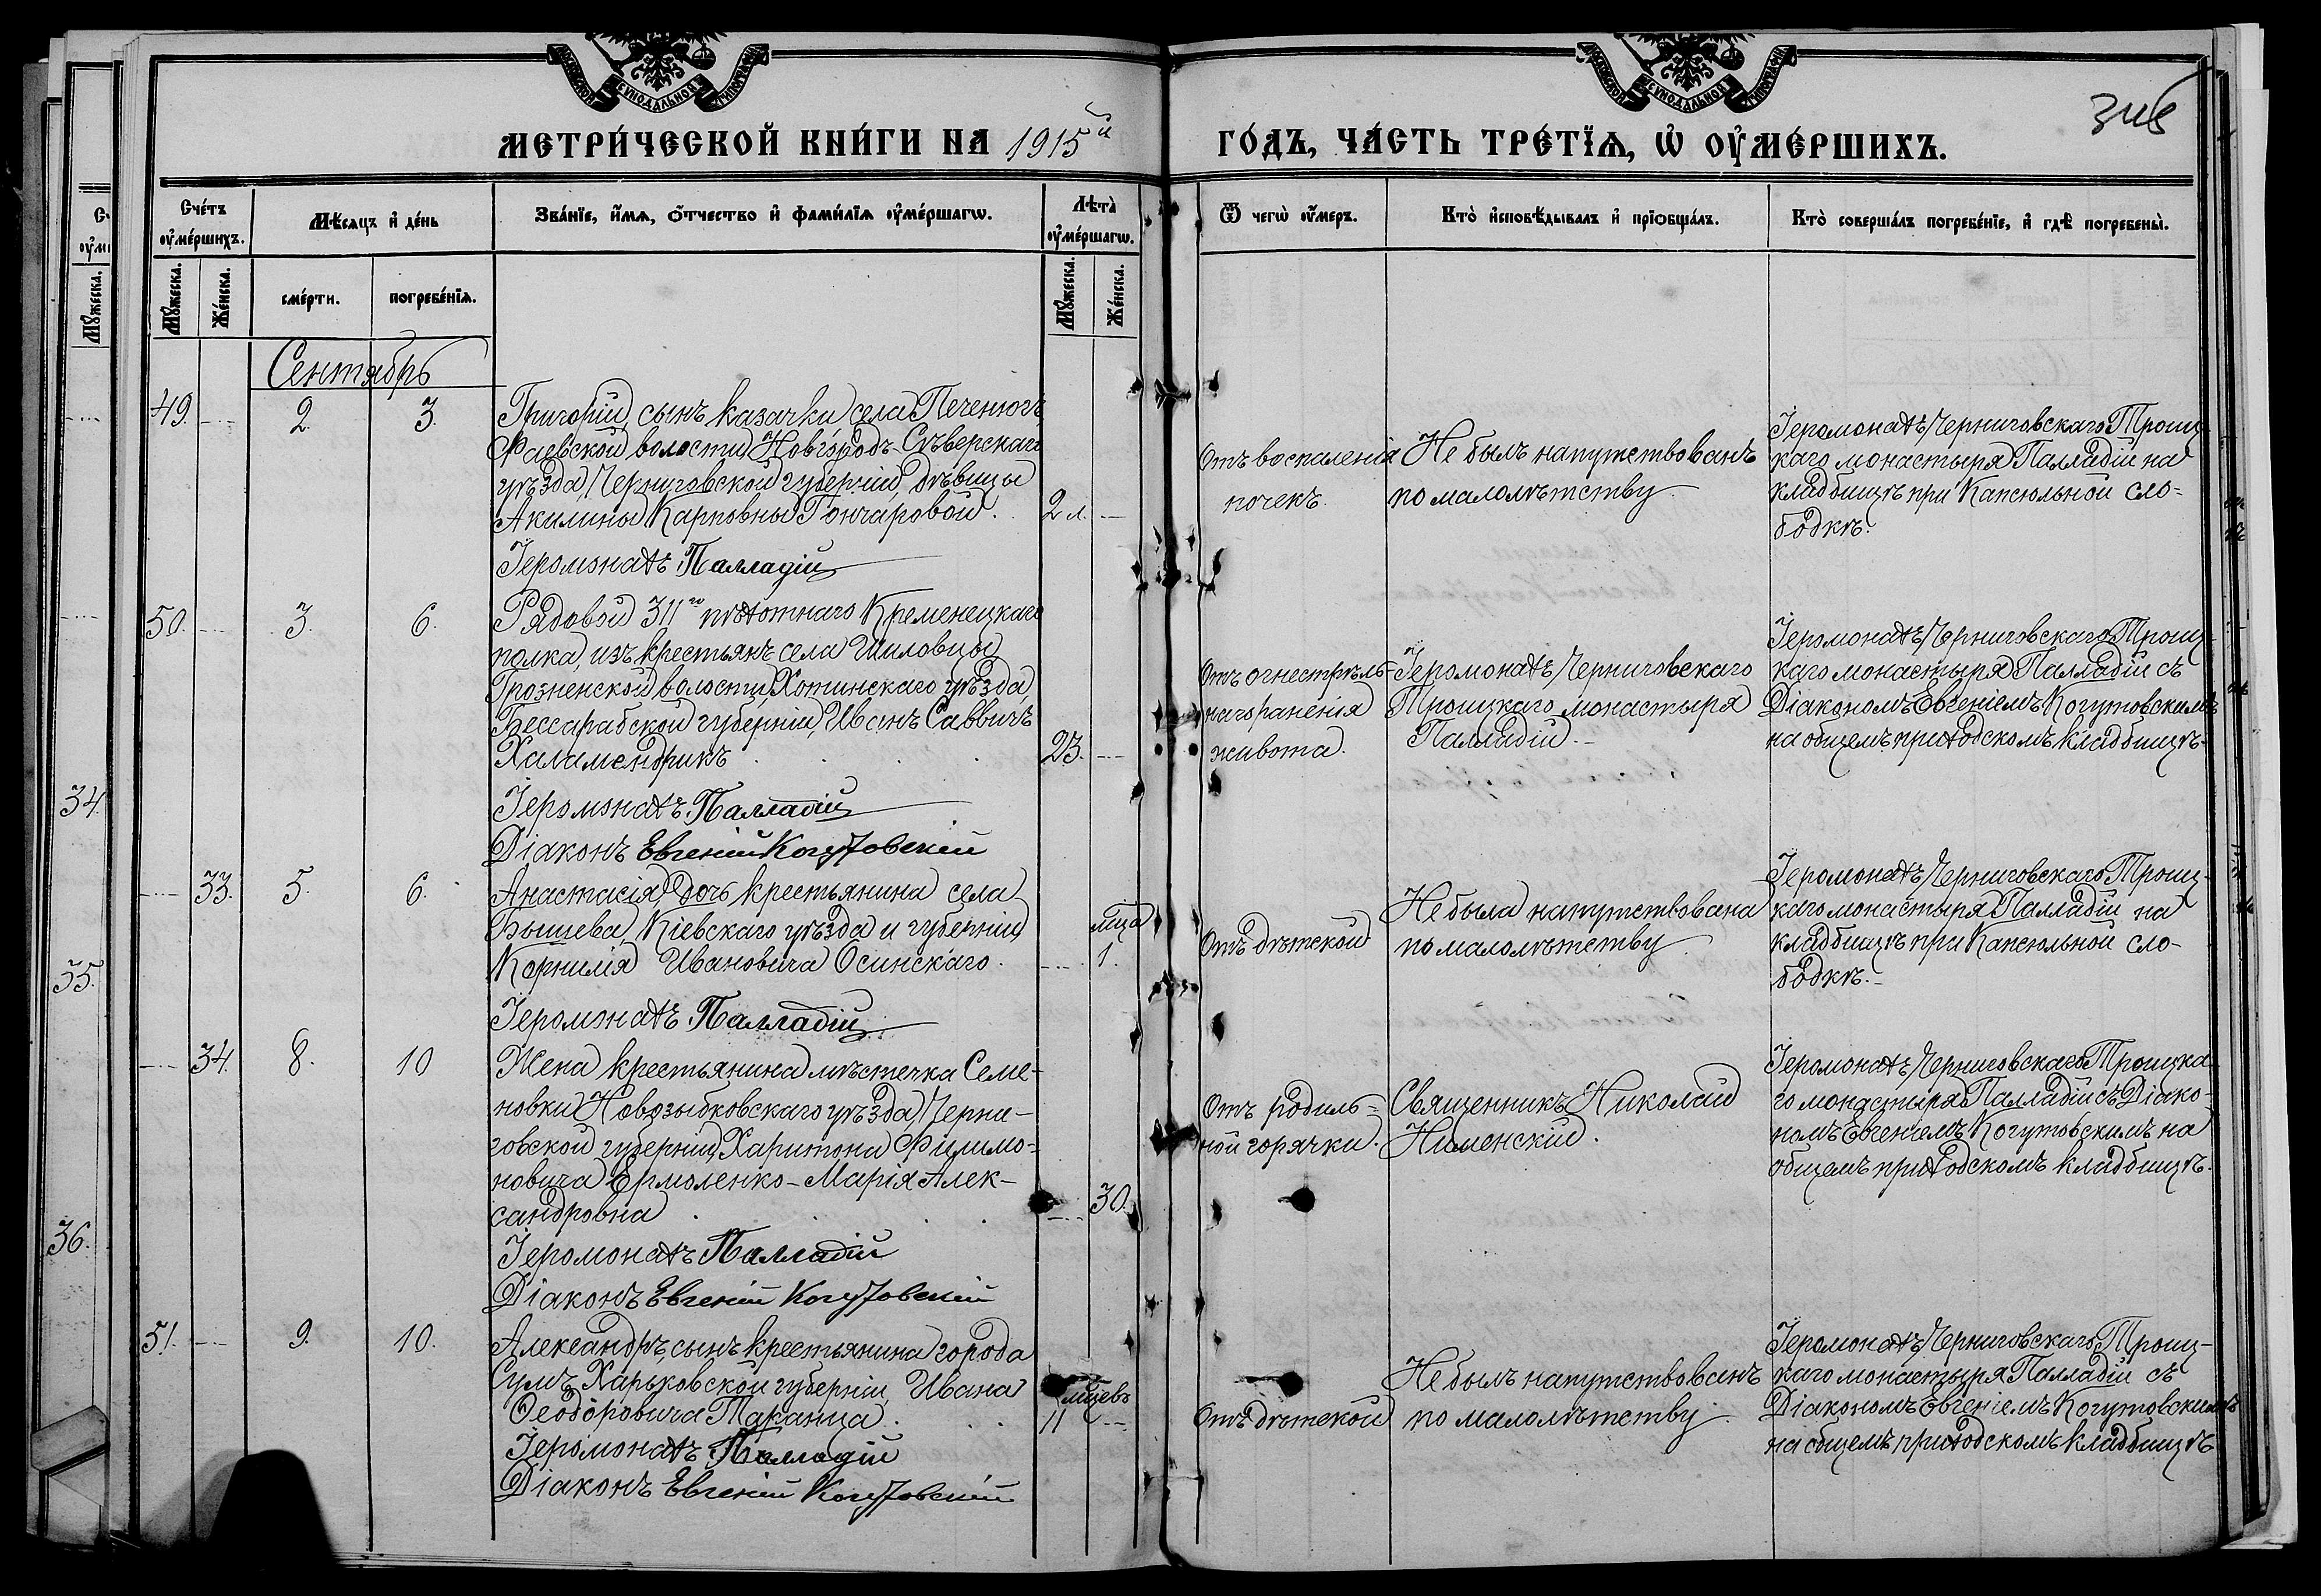 МЕТРИ́ЧЕСКОЙ КНИ́ГИ НА 1915й
ГО́ДЪ, ЧА́СТЬ ТРЕ́ТЇѦ, Ѡ҆ ОУ҆МЕ́РШИХЪ.
Счéтъ оу҆мéршихъ.
Мѣ́сяцъ и҆ дéнь
Звáнїе, и҆́мѧ, ѻ҆́тчество и҆ фами́лїѧ оу҆мéршагѡ.
Лѣтà оу҆мéршагѡ.
Ѿ чегѡ̀ оу҆́меръ.
Ктò и҆сповѣ́дывалъ и҆ прїѡбщáлъ.
Ктò совершáлъ погребéнїе, и҆ гдѣ̀ погребены̀.
Мꙋ́жеска.
Жéнска.
смéрти.
погребéнїѧ.
Мꙋ́жеска.
Жéнска.
Сентябрь
49. 2. 3.
Григорій, сынъ казачки села Печенюгъ
Фаевской волости Новгородъ-Сѣверскаго
уѣзда, Черниговской губерніи, дѣвицы
Акилины Карповны Гончаровой. 2 л.
Іеромонахъ Палладій
Отъ воспаленія
почекъ.
Не былъ напутствованъ
по малолѣтству.
Іеромонахъ Черниговскаго Троиц-
каго монастыря Палладій на
кладбищѣ при Капсюльной сло-
бодкѣ.
50. 3. 6.
Рядовой 311го пѣхотнаго Кременецкаго
полка, изъ крестьянъ села Шиловцы
Грозненской волости, Хотинскаго уѣзда,
Бессарабской губерніи, Иванъ Саввичъ
Халамендрикъ 23.
Іеромонахъ Палладій
Діаконъ Евгеній Когутовскій
Отъ огнестрѣль-
наго раненія
живота.
Іеромонахъ Черниговскаго
Троицкаго монастыря
Палладій.
Іеромонахъ Черниговскаго Троиц-
каго монастыря Палладій съ
Діакономъ Евгеніемъ Когутовскимъ
на общемъ приходскомъ кладбищѣ.
33. 5. 6.
Анастасія, дочь крестьянина села
Бышева, Кіевскаго уѣзда и губерніи
Корнилія Ивановича Осинскаго. мца 1.
Іеромонахъ Палладій
Отъ дѣтской
Не была напутствована
по малолѣтству.
Іеромонахъ Черниговскаго Троиц-
каго монастыря Палладій на
кладбищѣ при Капсюльной сло-
бодкѣ.
34. 8. 10
Жена крестьянина мѣстечка Семе-
новки Новозыбковскаго уѣзда, Черни-
говской губерніи, Харитона Филимо-
новича Ермоленко - Марія Алек-
сандровна 30.
Іеромонахъ Палладій
Діаконъ Евгеній Когутовскій
Отъ родиль-
ной горячки.
Священникъ Николай
Іеромонахъ Черниговскаго Троицка-
го монастыря Палладій съ Діако-
номъ Евгеніемъ Когутовскимъ на
общемъ приходскомъ кладбищѣ.
51. 9. 10.
Александръ, сынъ крестьянина города
Сумъ Харьковской губерніи, Ивана
Ѳеодоровича Таканца. мцевъ 11
Іеромонахъ Палладій
Діаконъ Евгеній Когутовскій
Отъ дѣтской
Не былъ напутствованъ
по малолѣтству.
Іеромонахъ Черниговскаго Троиц-
каго монастыря Палладій съ
Діакономъ Евгеніемъ Когутовскимъ
на общемъ приходскомъ кладбищѣ
34.
35.
36.